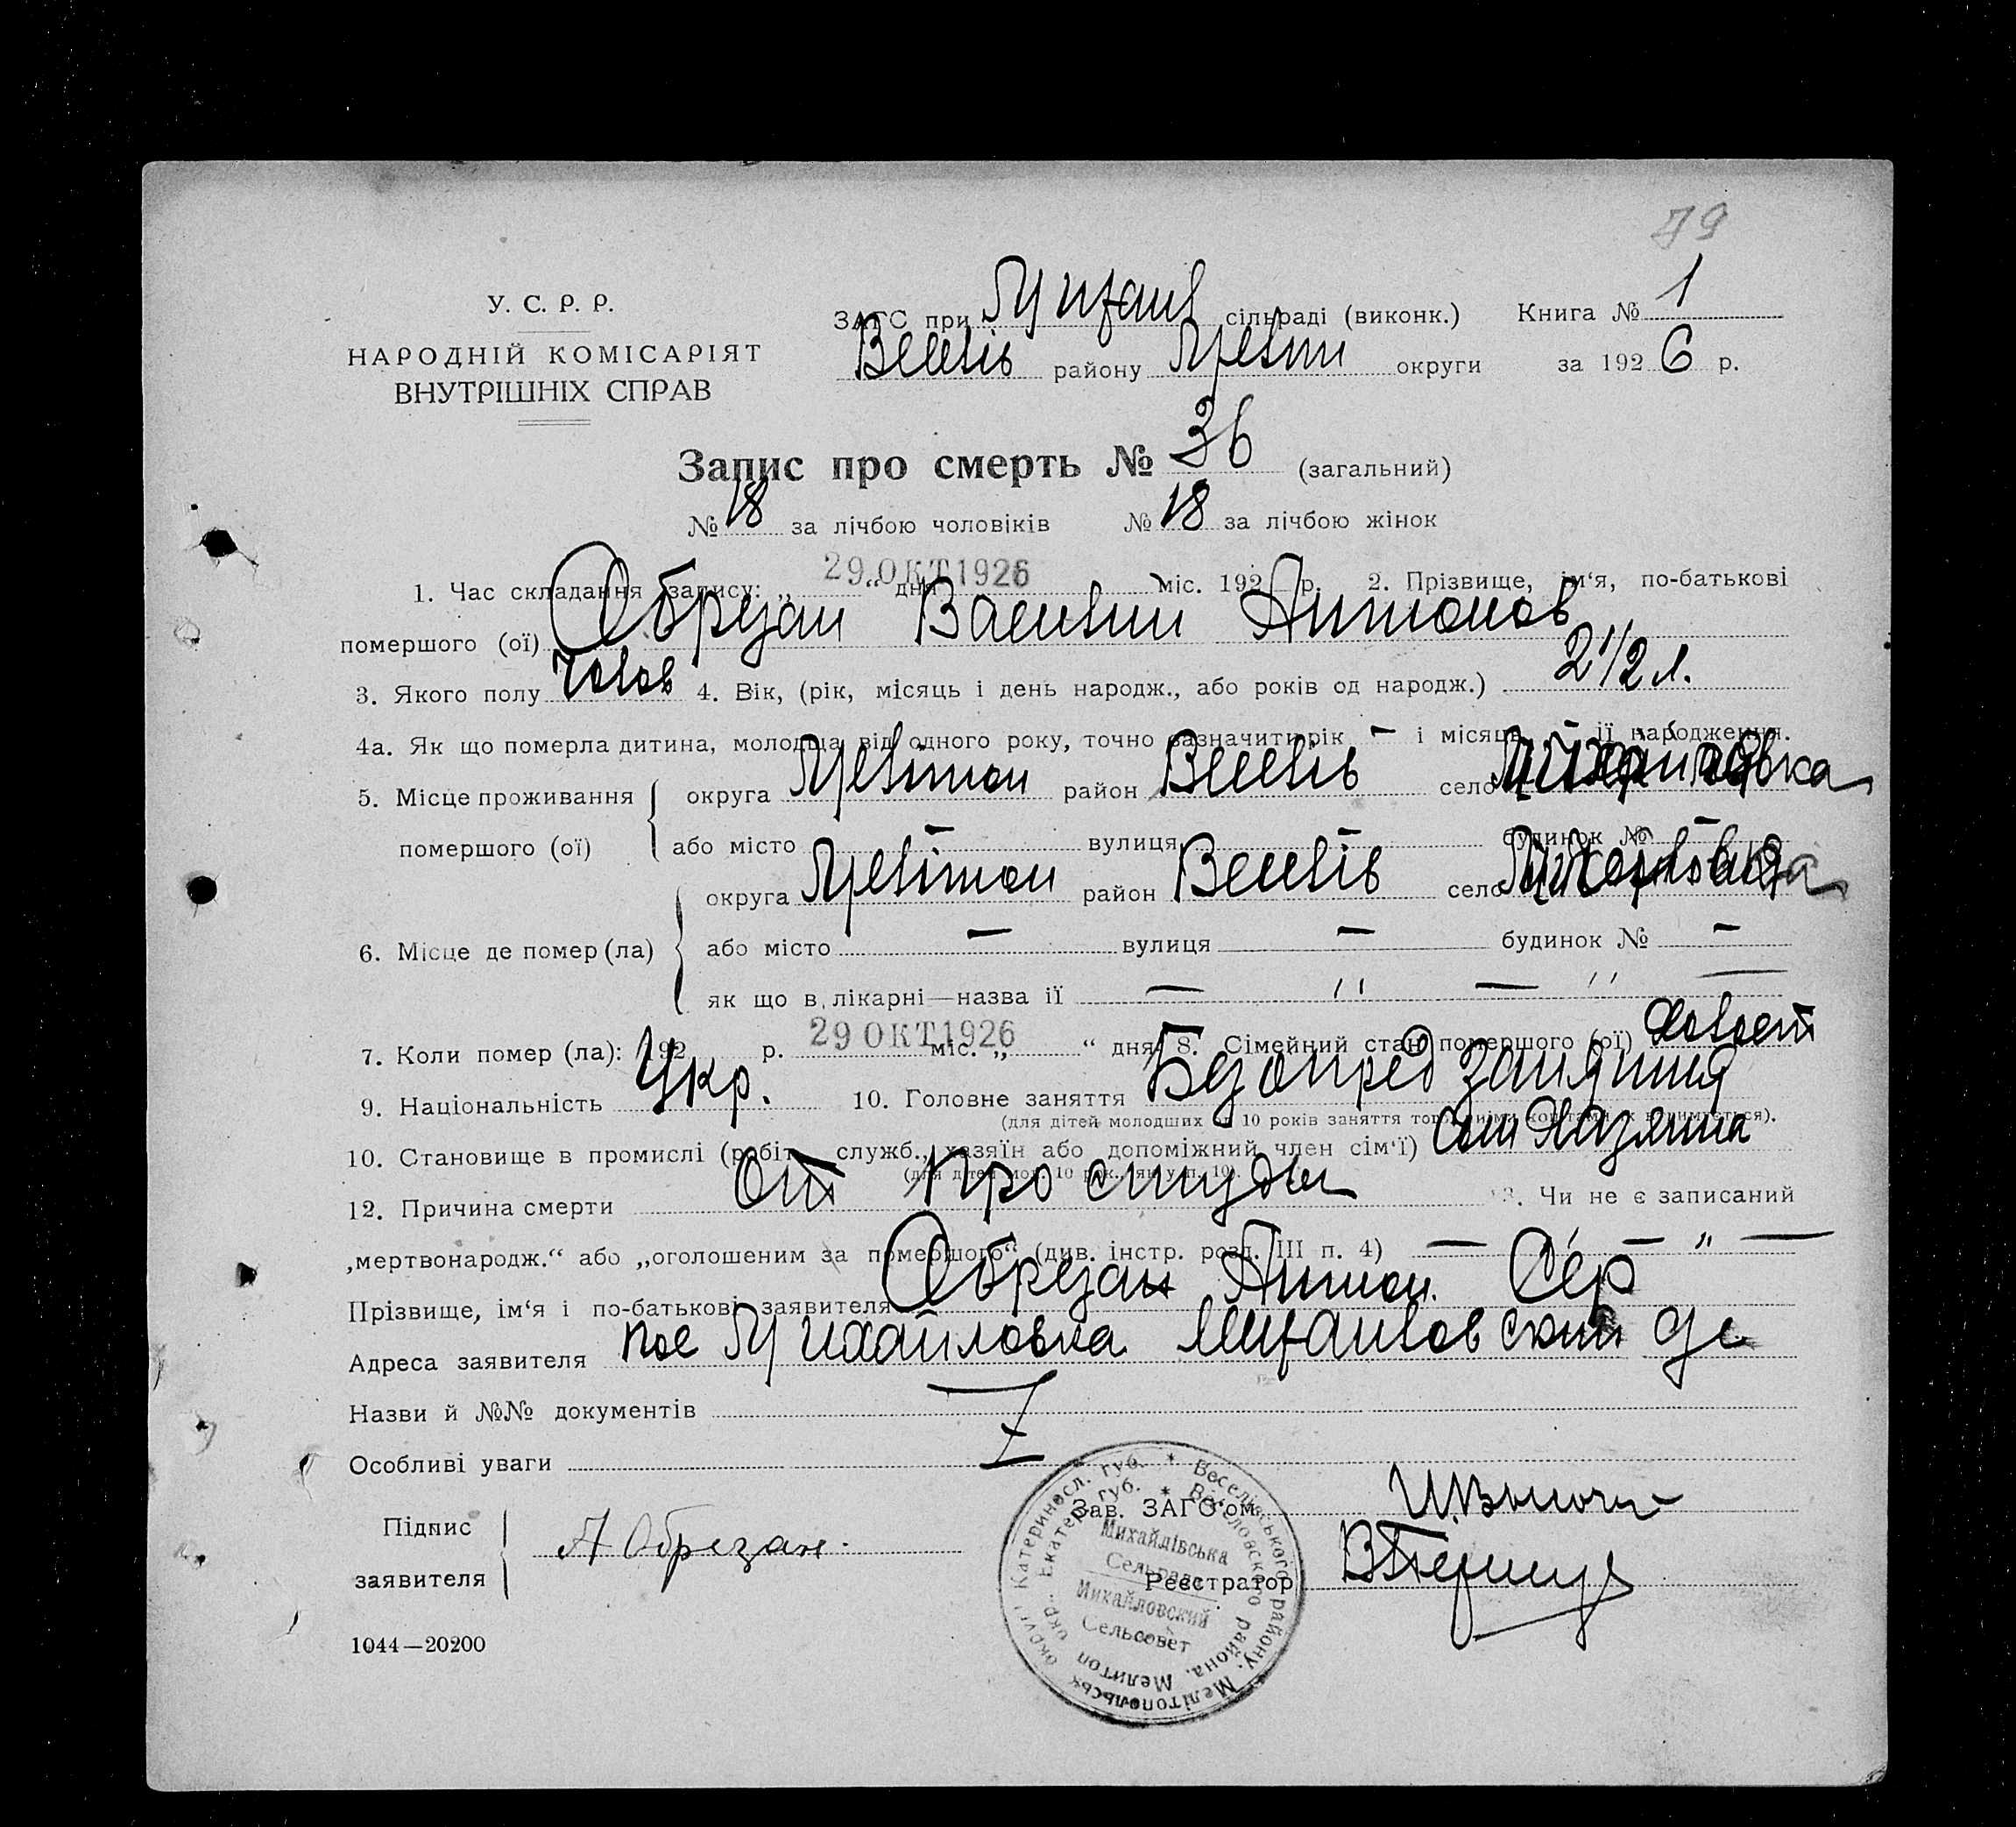 79
У. С. Р. Р.
НАРОДНІЙ КОМІСАРІЯТ
ВНУТРІШНІХ СПРАВ
ЗАГС при Михайл сільраді (виконк.) Книга № 1
Веселів району Меліт округи за 1926 р.
Запис про смерть № 36 (загальний)
№ 18 за лічбою чоловіків № 18 за лічбою жінок
1. Час складання запису: „ “ дня 29 ОКТ 1926 міс. 192 р. 2. Прізвище, ім‘я, по-батькові
помершого (ої) Обрезан Василий Антонов
3. Якого полу 4. Вік, (рік, місяць і день народж., або років од народж.) 2 1/2 л.
4а. Як що померла дитина, молодща від одного року, точно зазначити рік — і місяць її народження.
5. Місце проживання помершого (ої) округа Мелітоп район Веселів село Михайловка
або місто — вулиця — будинок № —
6. Місце де помер (ла) округа Мелітоп район Веселів село Михайловка
або місто — вулиця — будинок № —
як що в лікарні—назва її — „ — „ —
7. Коли помер (ла): 192 р. 29 ОКТ 1926 міс. „ “ дня 8. Сімейний стан помершого (ої) Холост
9. Національність Укр. 10. Головне заняття Без опред занятия
(для дітей молодших од 10 років заняття того, чиїми коштами їх утримується).
10. Становище в промислі (робіт., служб., хазяїн або допоміжний член сім‘ї) Сын Хазяина
(для дітей мол. 10 рок., як у п. 10).
12. Причина смерти От простуды 13. Чи не є записаний
„мертвонародж.“ або „оголошеним за помершого“ (див. інстр. розд. III п. 4) — „ — „ —
Прізвище, ім‘я і по-батькові заявителя Обрезан Антон Сер
Адреса заявителя пос Михайловка
Назви й №№ документів
Особливі уваги
Підпис
заявителя А Обрезан.
Зав. ЗАГС‘ом
Реєстратор
Катериносл. губ. ✶ Веселівського району, Мелітопольськ округи
Екатер. губ. ✶ Веселовского района, Мелитоп окр.
Михайлівська
Сельрада
Михайловский
Сельсовет
1044—20200